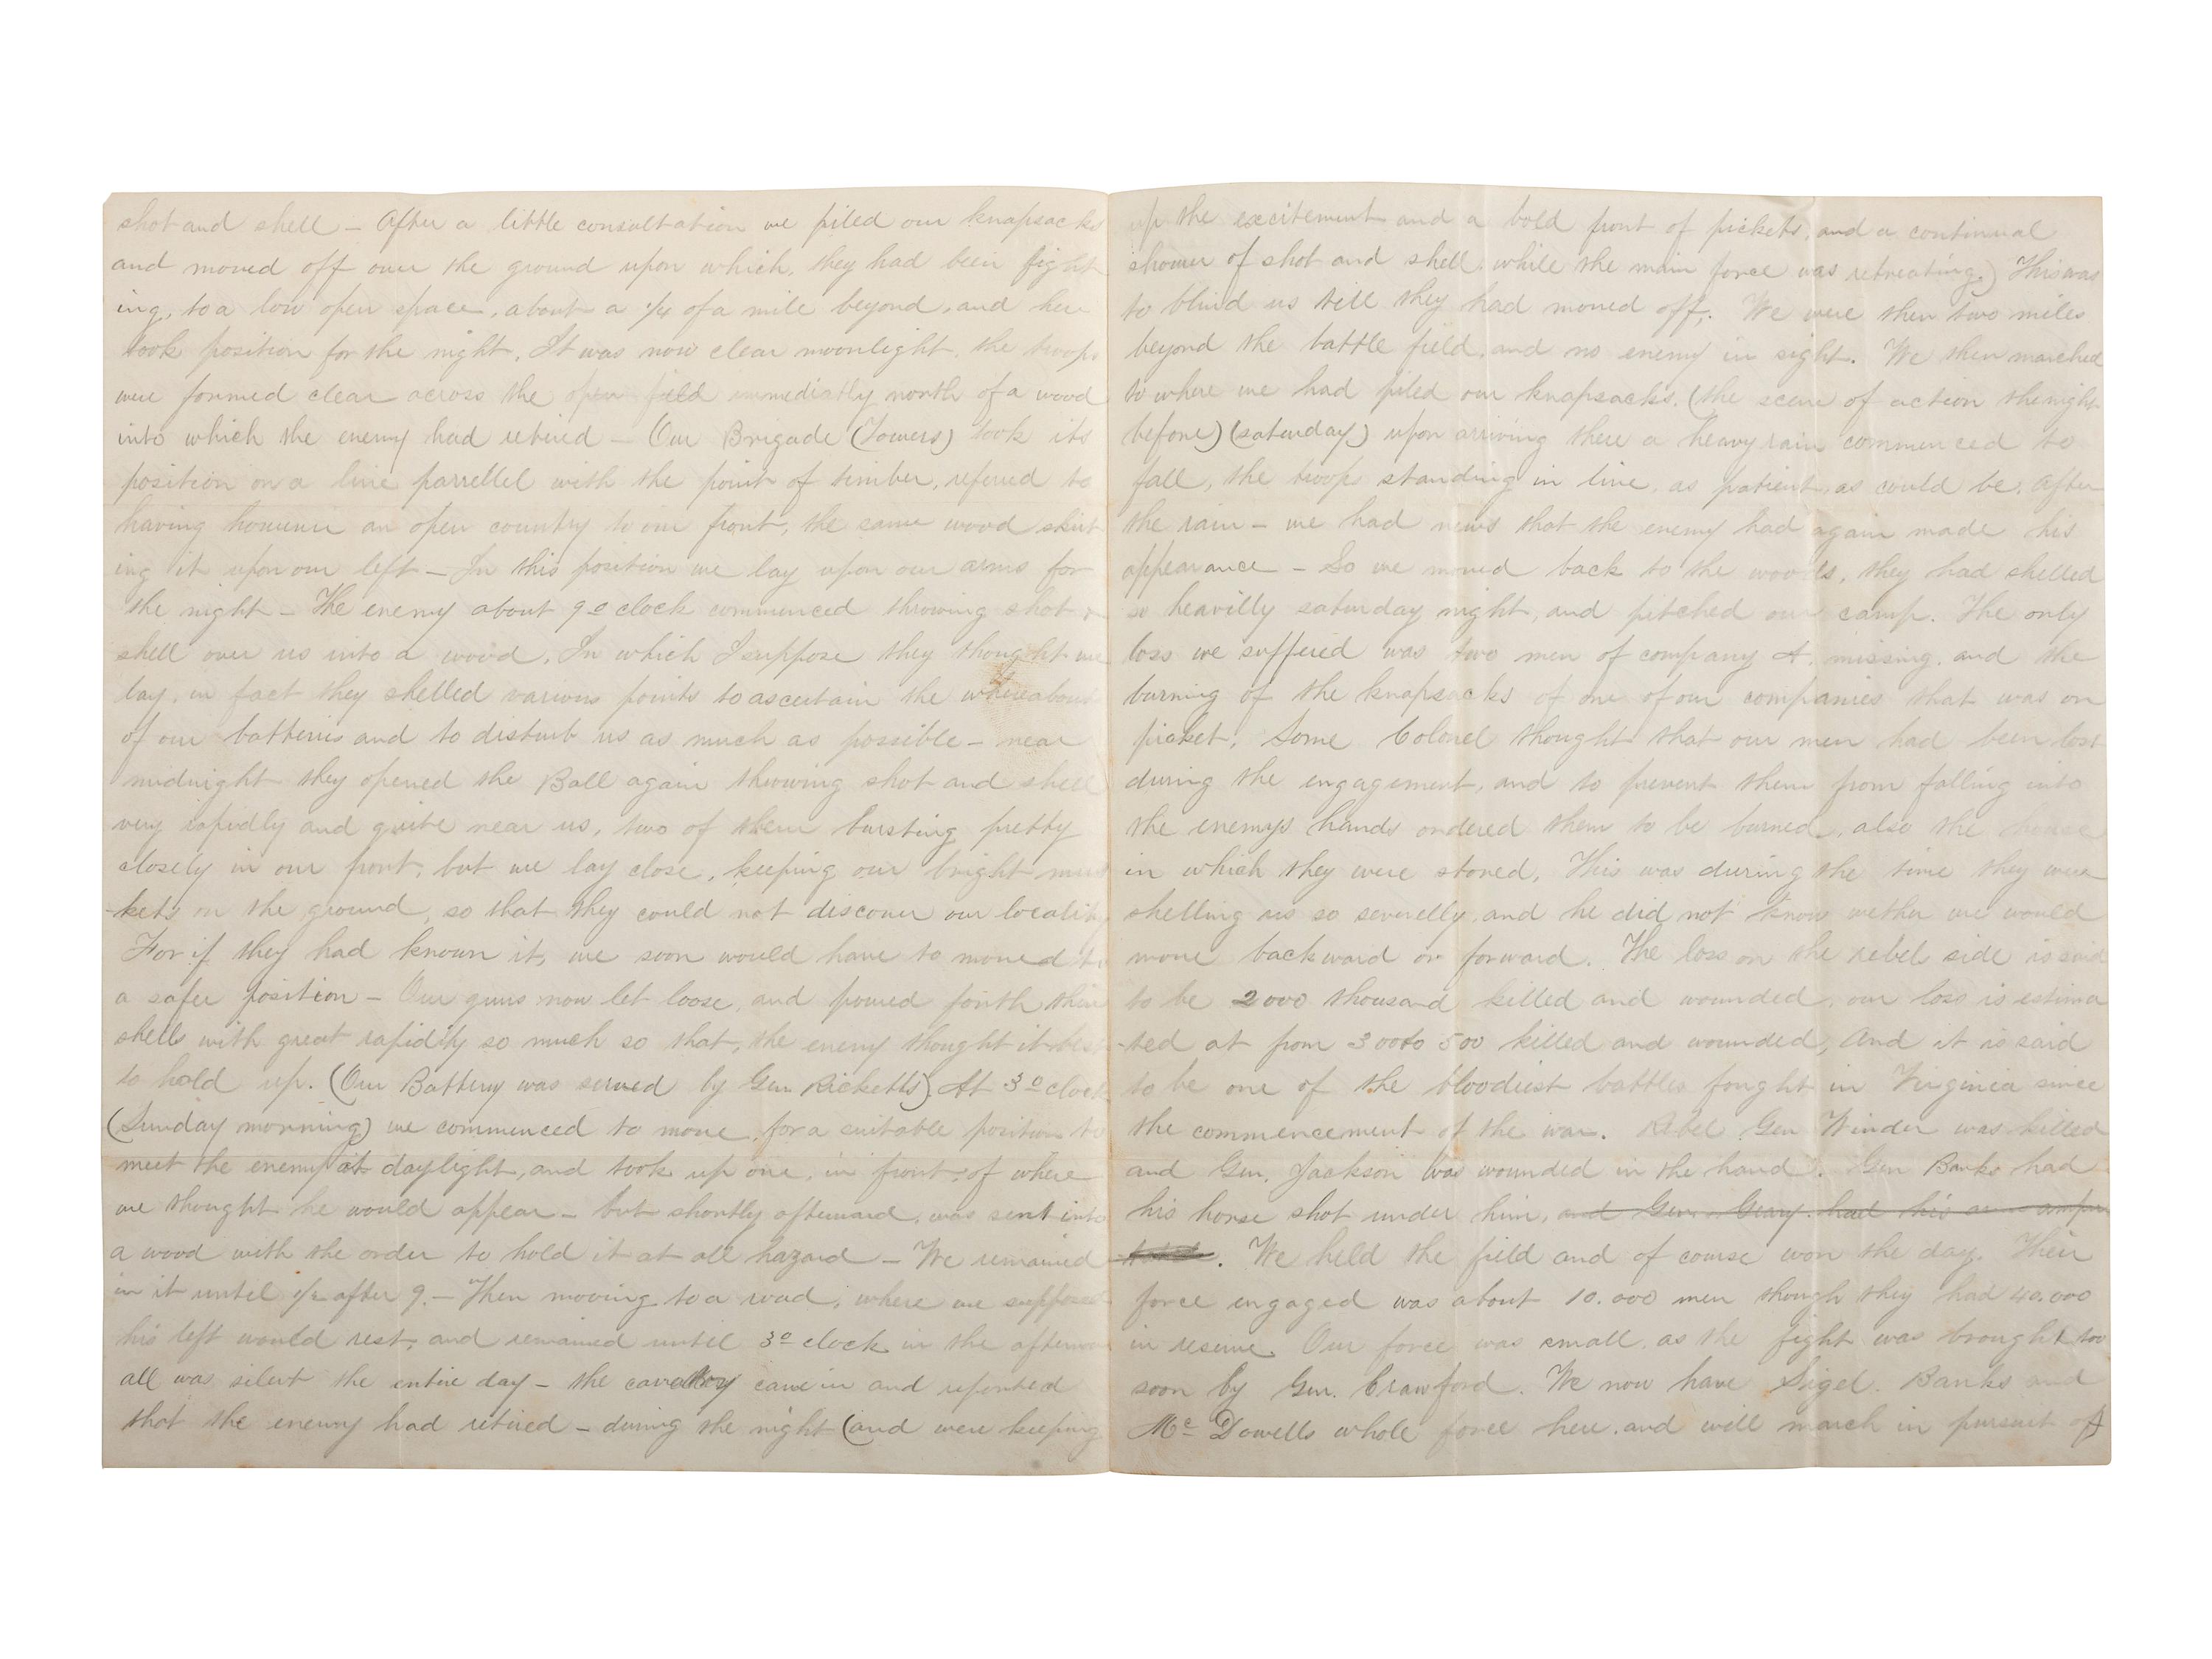 shot and shell – After a little consultation we piled our knapsacks
and moved off over the ground upon which, they had been fight
ing, to a low open space, about a 1/4 of a mile beyond, and here
took position for the night. It was now clear moonlight, the troops
were formed clear across the open field immediatly north of a wood
into which the enemy had retired – Our Brigade (Towers) took its
position on a line parrellel with the point of timber, referred to
having however an open country to our front, the same wood skirt
ing it upon our left – In this position we lay upon our arms for
the night – The enemy about 9 o clock commenced throwing shot &
shell over us into a wood. In which I suppose they thought we
lay, in fact they shelled various points to ascertain the whereabouts
of our batteries and to disturb us as much as possible – near
midnight they opened the Ball again throwing shot and shell
very rapidly and quite near us, two of them bursting pretty
closely in our front, but we lay close, keeping our bright mus
-kets on the ground, so that they could not discover our locality
For if they had known it, we soon would have to moved to
a safer position – Our guns now let loose, and poured forth their
shells with great rapidity so much so that, the enemy thought it best
to hold up. (Our Battery was served by Gen. Ricketts). At 3 o clock
(Sunday morning) we commenced to move, for a suitable position to
meet the enemy at daylight, and took up one, in front of where
we thought he would appear – but shortly afterward, was sent into
a wood with the order to hold it at all hazard – We remained
in it until 1/2 after 9. – Then moving to a wood, where we supposed
his left would rest, and remained until 3 o clock in the afternoon
all was silent the entire day – the cavallry came in and reported
that the enemy had retired – during the night (and were keeping
up the excitement and a bold front of pickets, and a continual
shower of shot and shell, while the main force was retreating.) This was
to blind us till they had moved off. We were then two miles
beyond the battle field, and no enemy in sight. We then marched
to where we had piled our knapsacks. (the scene of action the night
before) (saturday) upon arriving there a heavy rain commenced to
fall, the troops standing in line, as patient, as could be. After
the rain – we had news that the enemy had again made his
appearance – So we moved back to the woods, they had shelled
so heavilly saturday night, and pitched our camp. The only
loss we suffered was two men of company A, missing, and the
burning of the knapsacks of one of our companies that was on
picket. Some Colonel thought that our men had been lost
during the engagement, and to prevent them from falling into
the enemys hands ordered them to be burned, also the house
in which they were stored. This was during the time they were
shelling us so severelly, and he did not know wether we would
move backward or forward. The loss on the rebel side is said
to be 2000 thousand killed and wounded, our loss is estima
-ted at from 300 to 500 killed and wounded, And it is said
to be one of the bloodiest battles fought in Virginia since
the commencement of the war. Rebel Gen Winder was killed
and Gen. Jackson was wounded in the hand. Gen Banks had
his horse shot under him, and Gen. Geary. had his arm ampu
. We held the field and of course won the day. Their
force engaged was about 10.000 men though they had 40.000
in reserve. Our force was small, as the fight was brought too
soon by Gen. Crawford. We now have Sigel. Banks and
Mc Dowells whole force here, and will march in pursuit of